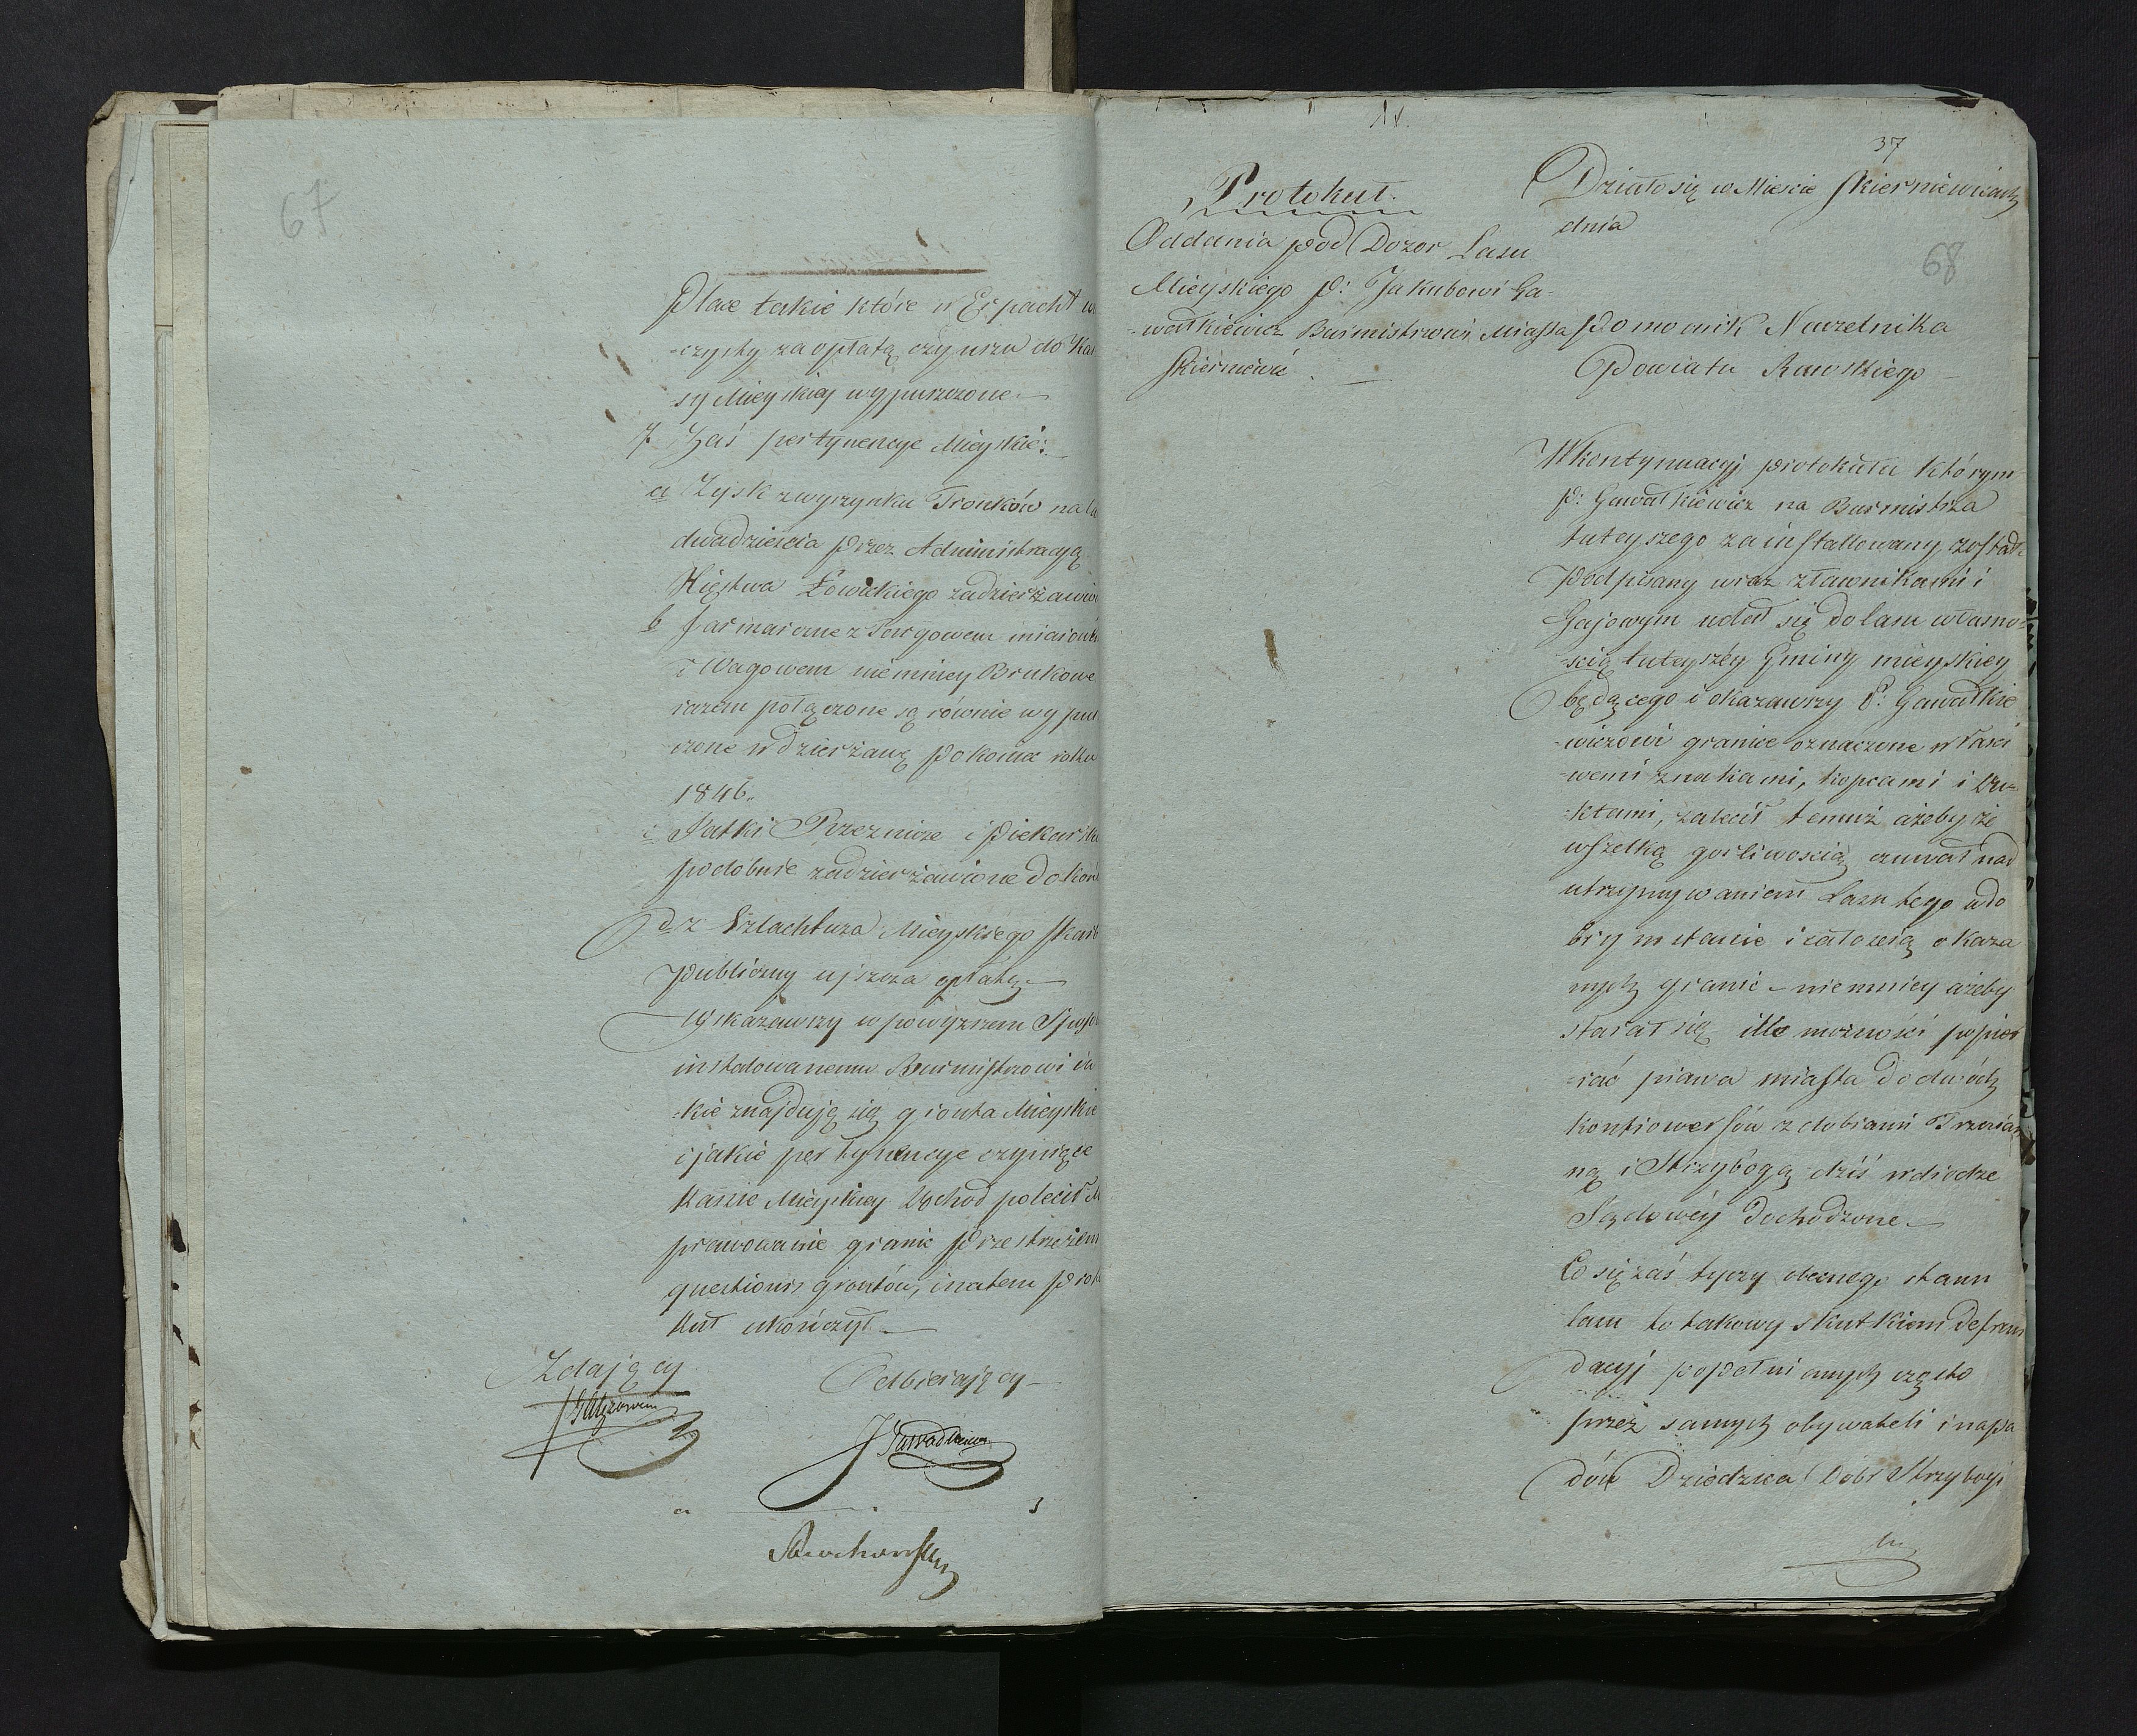 67
Place takie które w Erpacht w
-czysty za opłatą czynszu do Kas
sy Mieyskiey wypuszczone. —
7. Zaś pertynencye Mieyskie:
a Zysk z wyszynku Tronków na la
dwadzieścia przez Administracyą
Xięstwa Łowickiego zadzierżawio
b Jarmarczne z Targowem miarowe
i Wagowem niemniey Brukowe
razem połączone są równie wypu
czone w dzierżawę po koniec roku
1846.
c Jatki Rzeznicze i Piekarskie
podobnie zadzierżawione do koń
d z Szlachtuza Mieyskiego Skarb
Publiczny uiszcza opłatę. —
Wskazawszy w powyższem Sposo
instalowanemu Burmistrzowi ia
-kie znajdują się gronta Mieyskie
i jakie pertynencye czyniące
Kassie Mieyskiey Dochod polecił M
prawowanie granic przestrzeżen
questionis grontów, i na tem Proto
kuł ukończył —
Zdający
Odbierający —
J Gawadkiewicz
37
68
Protokuł.
Oddania pod Dozor Lasu
Mieyskiego P: Jakubowi Ga-
-wałkiewicz Burmistrzowi Miasta
Skierniewic . —
Działo się w Mieście Skierniewicach
dnia
Pomocnik Naczelnika
Powiatu Rawskiego —
W kontynuacyj protokułu którym
P: Gawałkiewicz na Burmistrza
tuteyszego zainstallowany został
Podpisany wraz z Ławnikami i
Gajowym udał się do lasu własno-
-scią tuteyszey Gminy mieyskiey
będącego i okazawszy P: Gawałkie
-wiczowi granice oznaczone właści
-wemi znakami, kopcami i Du-
-ktami, zalecił temuż ażeby ze
wszelką gorliwością czuwał nad
utrzymywaniem Lasu tego w do
brym stanie i całością okaza
nych granic – niemniey ażeby
starał się ile możności popie
-rać prawa miasta do dwóch
kontrowersów z dobrami Trzcian
ną i Strzybogą dziś w drodze
Sądowéy dochodzone. —
Co się zaś tyczy obecnego stanu
lasu to takowy skutkiem defrau
dacyj popełnianych często
przez samych obywateli i napa
dów Dziedzica Dobr Strzybogi